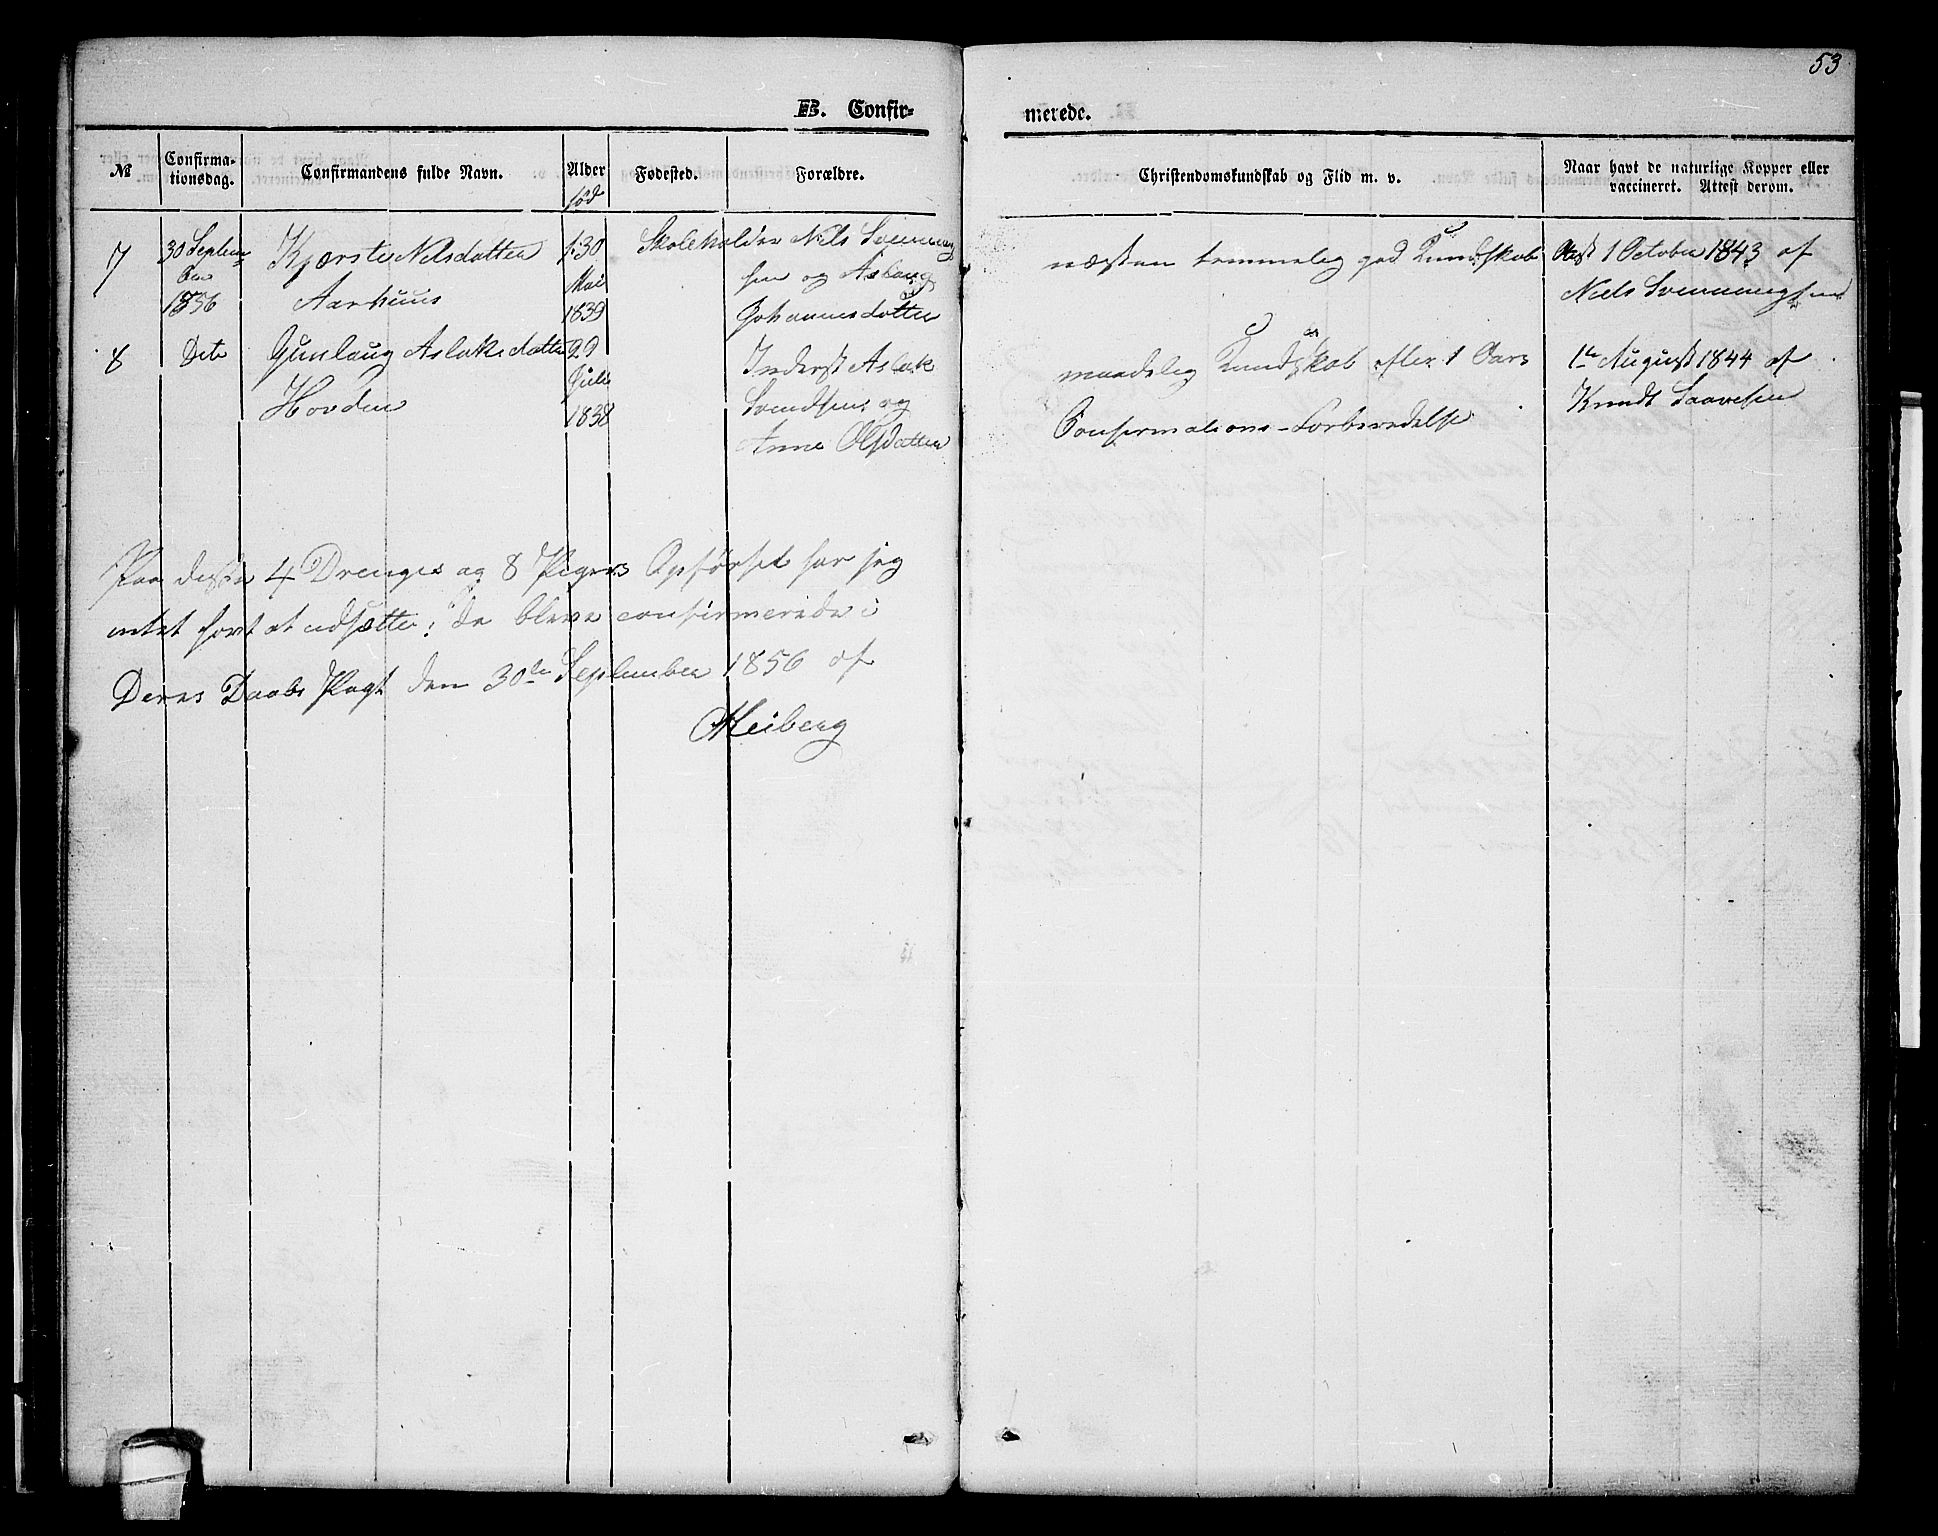 53
B. Confir-
merede.
№
Confirma-
tionsdag.
Confirmandens fulde Navn.
Alder
fød
Fødested.
Forældre.
Christendomskundskab og Flid m. v.
Naar havt de naturlige Kopper eller
vaccineret. Attest derom.
7
30 Septem-
ber
1856
Kjærstie Nilsdatter
Aarhuus
30
Mai
1839
Skoleholder Nils Svenning
sen og Aslaug
Johannesdatter
næsten temmelig god Kundskab
Attest 1 October 1843 af
Niels Svenningsen
8
Dito
Gunlaug Aslaksdatter
Hovden
29
Juli
1838
Inderst Aslak
Svendsen og
Anne Olsdatter
maadelig Kundskab efter 1 Aars
Confirmations-Forberedelse
1te August 1844 af
Knudt Saavesen
Paa disse 4 Drenges og 8 Pigers Opførsel har jeg
intet havt at udsætte; de bleve confirmerede i
Deres Daabs Pagt den 30de September 1856 af
Heiberg